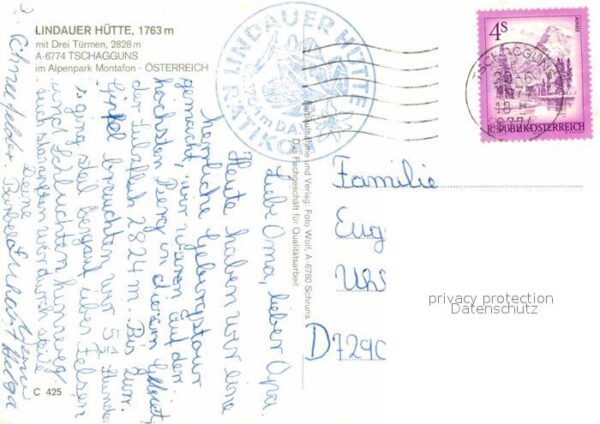 LINDAUER HÜTTE, 1763 m
mit Drei Türmen, 2828 m
A-6774 TSCHAGGUNS
im Alpenpark Montafon - ÖSTERREICH
LINDAUER HÜTTE
RÄTIKON
4S
REPUBLIK ÖSTERREICH
TSCHAGGUNS
Liebe Oma, lieber Opa!
Heute haben wir eine
herrliche Gebirgstour
gemacht, wir waren auf dem
höchsten Berg in diesem Gebiet,
der Sulzfluh 2824 m. Bis zum
Gipfel brauchten wir 5½ Stunden
es ging steil bergauf über Felsen
und Schluchten hinweg
wir durch steile
Deine
Helga
Familie
Eug
D729
und Verlag: Foto Wolf, A-6780 Schruns
Das Fachgeschäft für Qualitätsarbeit
C 425
privacy protection
Datenschutz